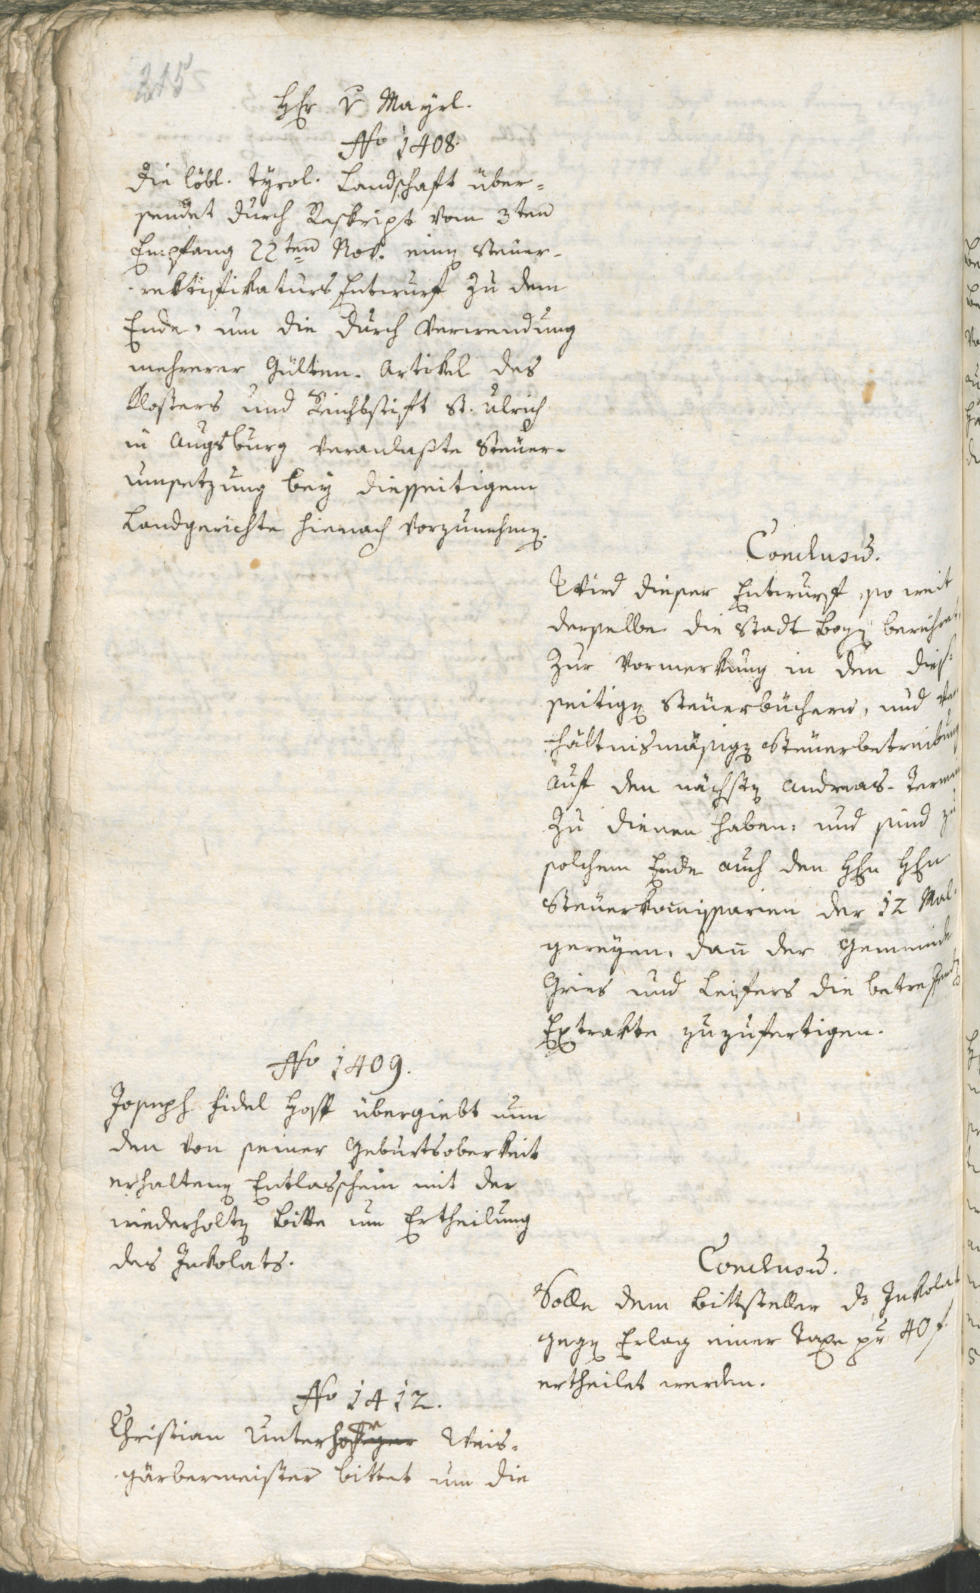 215
HEr v Mayrl.
No 1408.
Die löbl. tÿrol. Landschaft über-
sendet durch Reskript vom 3ten
Empfang 22ten Nov. einen Steuer-
rektifikaturs Entwurf zu dem
Ende, um die durch Verwendung
mehrerer Gülten-Artikel des
Klosters und Reichsstift St. Ulrich
in Augsburg veranlaßte Steuer-
umsetzung beÿ diesseitigem
Landgerichte hienach vorzunehmen.
Conclusum.
Wird dieser Entwurf, so weit
derselbe die Stadt Bozen berühret,
zur Vormerkung in den dies-
seitigen Steuerbüchern, und ver-
hältnismäsigen Steuerbetreibung
auf den nächsten Andreas-Termin
zu dienen haben: und sind zu
solchem Ende auch den HEn HEn
Steuerkommissarien der 12 Mal-
gereÿen, dann der Gemeinde
Gries und Leifers die betreffende
Extrakte zuzufertigen.
No 1409.
Joseph Fidel Hoff übergiebt nun
den von seiner Geburtsoberkeit
erhaltenen Entlasschein mit der
wiederholten Bitte um Ertheilung
des Inkolats.
Conclusum.
Solle dem Bittsteller das Inkolat
gegen Erlag einer Taxe pr 40 f.
ertheilet werden.
No 1412.
Christian Unterhofer Weis-
gärbermeister bittet um die